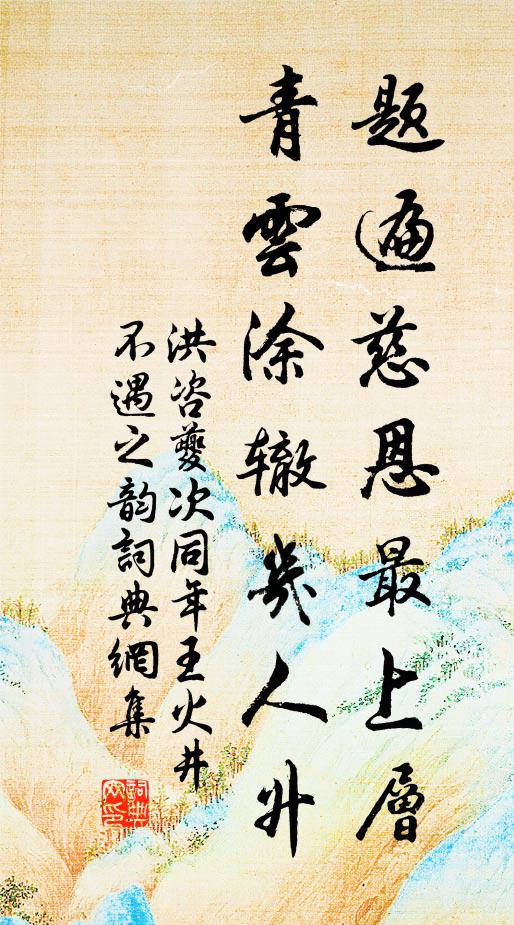 题遍慈恩最上層
青雲涂辙幾人升
洪咨夔次同年王火井
不遇之韵詞典網集